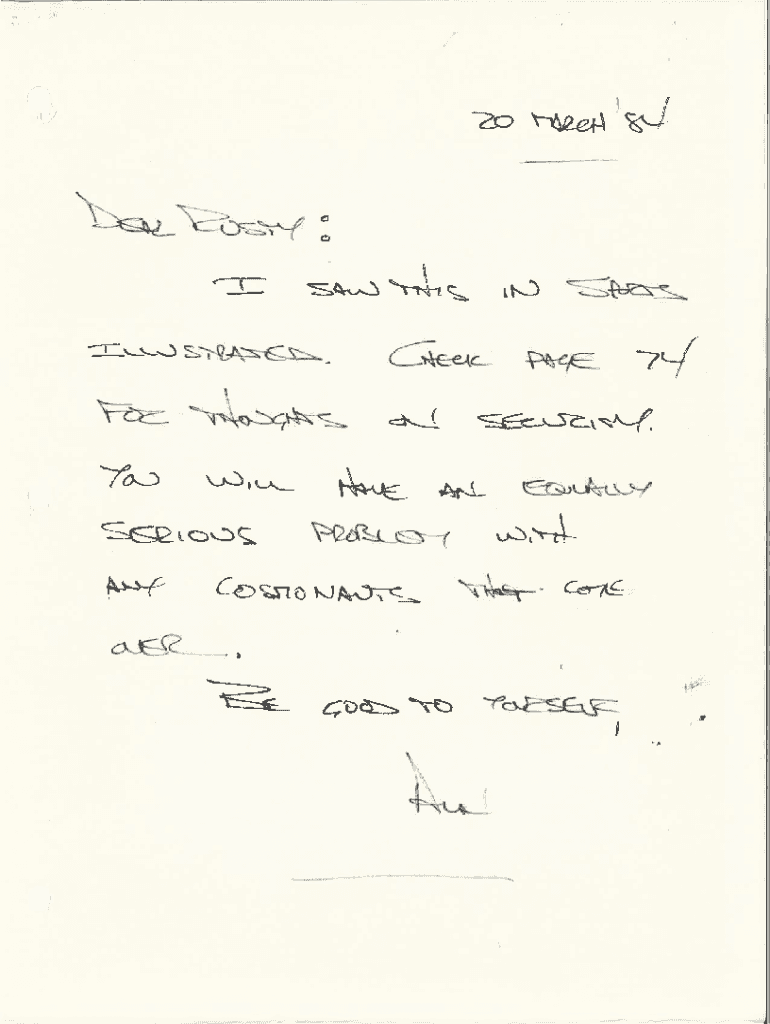 20 MARCH '84
DEAR RUSTY:
I SAW THIS IN SPORTS
ILLUSTRATED. CHECK PAGE 74
FOR THOUGHTS ON SECURITY.
YOU WILL HAVE AN EQUALLY
SERIOUS PROBLEM WITH
ANY COSMONAUTS THAT COME
OVER.
BE GOOD TO YOURSELF,